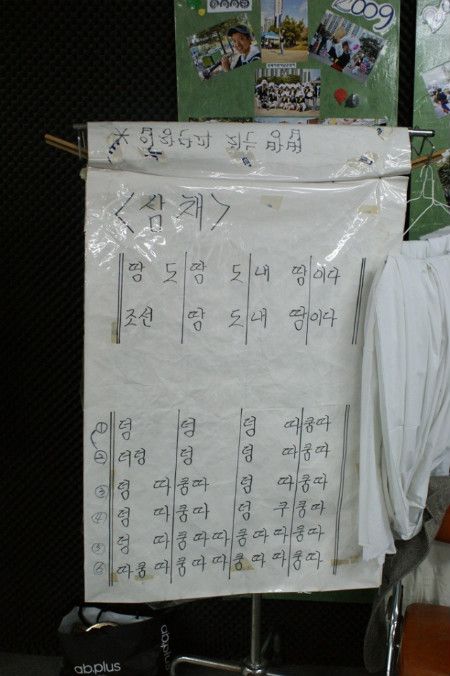 2009
<삼채>
땅 도 땅 도 내 땅 이다
조선 땅 도 내 땅 이다
① 덩 덩 덩 따 쿵따
② 더덩 덩 덩 따 쿵따
③ 덩 따 쿵따 덩 따 쿵따
④ 덩 따 쿵따 덩 쿠 쿵따
⑤ 덩 따 쿵따따 쿵따따 쿵따
⑥ 따쿵따 쿵따따 쿵따따 쿵따
ab.plus
ab.plus